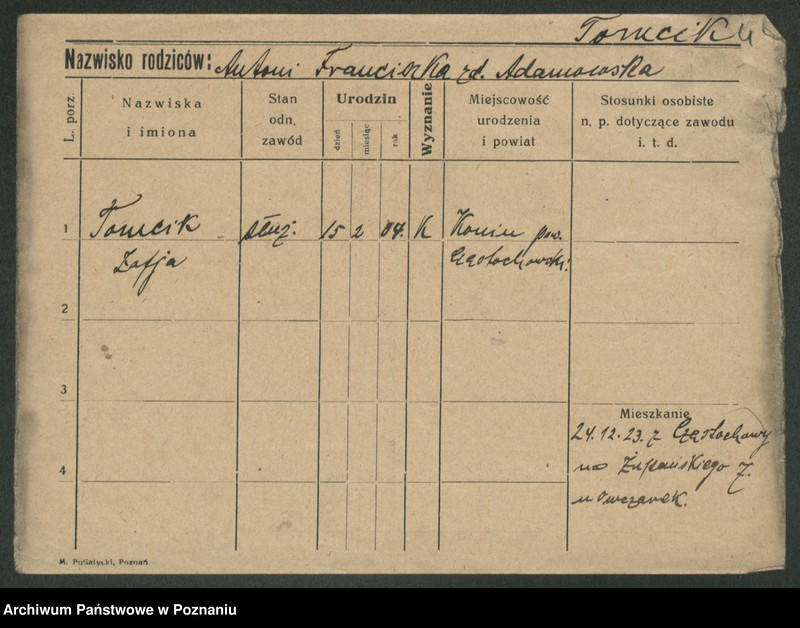 Tomcik
Nazwisko rodziców: Antoni Franciszka zd. Adamowska
L. porz.
Nazwiska
i imiona
Stan
odn.
zawód
Urodzin
dzień
miesiąc
rok
Wyznanie
Miejscowość
urodzenia
i powiat
Stosunki osobiste
n. p. dotyczące zawodu
i. t. d.
1
Tomcik służ. 15 2 04. K Konin pow.
Zofja Częstochowski.
2
3
4
Mieszkanie
24.12.23. z Częstochowy
na Żupańskiego 7.
u Owczarek.
M. Putiatycki, Poznań
Archiwum Państwowe w Poznaniu